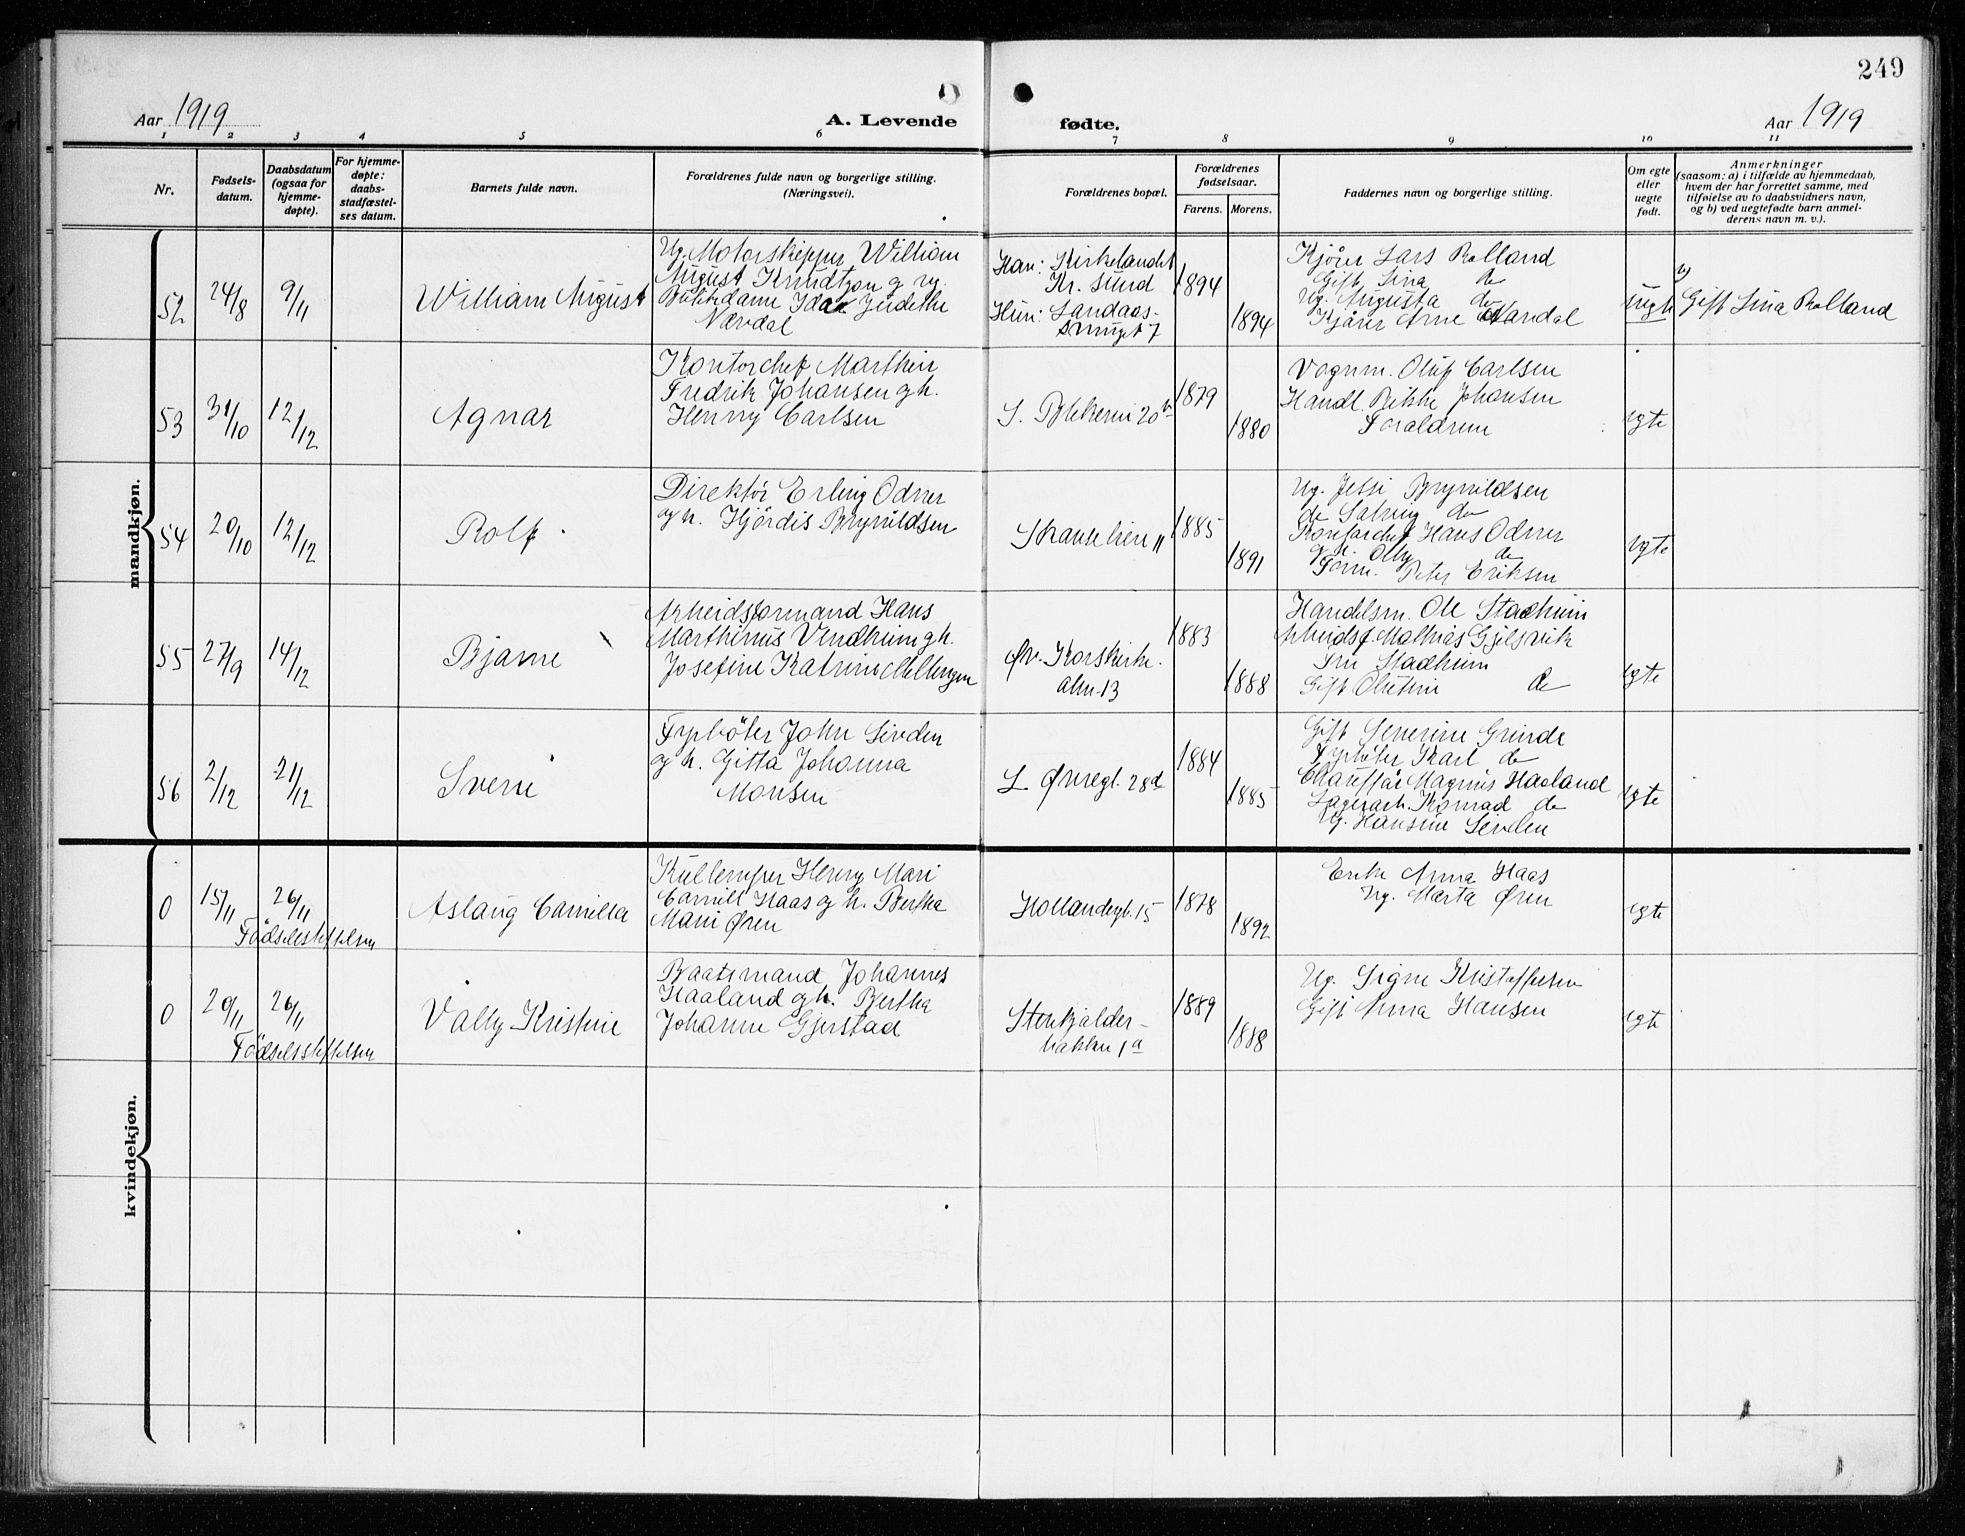 249
Aar 1919
A. Levende fødte.
Aar 1919
1 2 3 4 5 6 7 8 9 10 11
Nr.
Fødsels-
datum.
Daabsdatum
(ogsaa for
hjemme-
døpte).
For hjemme-
døpte:
daabs-
stadfæstel-
ses datum.
Barnets fulde navn.
Forældrenes fulde navn og borgerlige stilling.
(Næringsvei).
Forældrenes bopæl.
Forældrenes
fødselsaar.
Farens. Morens.
Faddernes navn og borgerlige stilling.
Om egte
eller
uegte
født.
Anmerkninger
(saasom: a) i tilfælde av hjemmedaab,
hvem der har forrettet samme, med
tilføielse av to daabsvidners navn,
og b) ved uegtefødte barn anmel-
derens navn m. v.).
mandkjøn.
52
24/8
9/11
William August
Ug. Motorskipper William
August Knudtzon og ug.
Butikdame Ida Judethe
Nævdal
Han: Kirkelandet
Kr. sund
Hun: Sandaas-
smuget 7
1894
1894
Kjører Lars Rolland
Gift Lina do
Ug. Augusta do
Kjører Arne Nævdal
uegte
b)
Gift Lina Rolland
53
31/10
12/12
Agnar
Kontorchef Marthin
Fredrik Johansen og h.
Henny Carlsen
S. Blekevei 20 b
1879
1880
Vognm. Oluf Carlsen
Handl. Rikke Johansen
Forældrene
egte
54
20/10
12/12
Rolf
Direktør Erling Odner
og h. Hjördis Brynildsen
Skanselien 11
1885
1891
Ug. Jessi Brynildsen
do Solveig do
Kontorchef Hans Odner
og h. Olly do
Form. Peter Eriksen
egte
55
27/9
14/12
Bjarne
Arbeidsformand Hans
Marthinus Vindheim og h.
Josefine Katrine Mellingen
Øv. Korskirke-
alm. 13
1883
1888
Handelsm. Ole Stadheim
Arbeidsf. Mathias Gjelsvik
Fru Stadheim
Gift Olufine do
egte
56
2/12
21/12
Sverre
Fyrbøter John Sivden
og h. Gitta Johanna
Monsen
L. Øvregt. 28d
1884
1885
Gift Severine Grinde
Fyrbøter Karl do
Chauffør Magnus Haaland
Lagerarb. Konrad do
Ug. Hansine Sivden
egte
kvindekjøn.
0
15/11
26/11
Fødselsstiftelsen
Aslaug Camilla
Kullemper Henry Mari
Camill Haas og h. Bertha
Marie Øren
Hollendergt. 15
1878
1892
Enke Anna Haas
Ug. Marta Øren
egte
0
20/11
26/11
Fødselsstiftelsen
Valby Kristine
Baatsmand Johannes
Haaland og h. Bertha
Johanne Gjerstad
Stenkjelder-
bakken 1a
1889
1888
Ug. Signe Kristoffersen
Gift Anna Hansen
egte